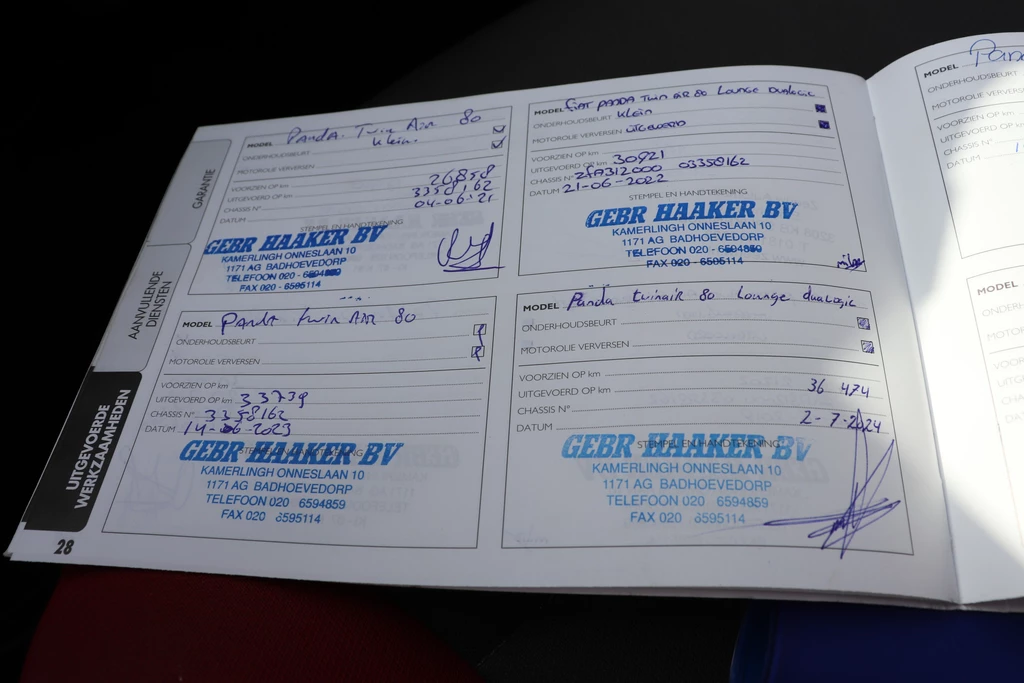 GARANTIE
AANVULLENDE
DIENSTEN
UITGEVOERDE
WERKZAAMHEDEN
28
MODEL Panda. Twin Air 80
ONDERHOUDSBEURT Klein.
MOTOROLIE VERVERSEN
VOORZIEN OP km
UITGEVOERD OP km 26858
CHASSIS N° 3358162
DATUM 04-06-21
STEMPEL EN HANDTEKENING
GEBR HAAKER BV
KAMERLINGH ONNESLAAN 10
1171 AG BADHOEVEDORP
TELEFOON 020 - 6594859
FAX 020 - 6595114
MODEL Fiat Panda Twin air 80 Lounge Dualogic
ONDERHOUDSBEURT Klein
MOTOROLIE VERVERSEN uitgevoerd
VOORZIEN OP km
UITGEVOERD OP km 30921
CHASSIS N° ZFA312000 03358162
DATUM 21-06-2022
STEMPEL EN HANDTEKENING
GEBR HAAKER BV
KAMERLINGH ONNESLAAN 10
1171 AG BADHOEVEDORP
TELEFOON 020 - 6594859
FAX 020 - 6595114
MODEL Panda twin AIR 80
ONDERHOUDSBEURT
MOTOROLIE VERVERSEN
VOORZIEN OP km
UITGEVOERD OP km 33739
CHASSIS N° 3358162
DATUM 14-06-2023
STEMPEL EN HANDTEKENING
GEBR HAAKER BV
KAMERLINGH ONNESLAAN 10
1171 AG BADHOEVEDORP
TELEFOON 020 6594859
FAX 020 6595114
MODEL Panda twinair 80 Lounge dualogic
ONDERHOUDSBEURT
MOTOROLIE VERVERSEN
VOORZIEN OP km
UITGEVOERD OP km 36 474
CHASSIS N°
DATUM 2-7-2024
STEMPEL EN HANDTEKENING
GEBR HAAKER BV
KAMERLINGH ONNESLAAN 10
1171 AG BADHOEVEDORP
TELEFOON 020 6594859
FAX 020 6595114
MODEL
ONDERHOUDSBEURT
MOTOROLIE VERVERSEN
VOORZIEN OP km
UITGEVOERD OP km
CHASSIS N°
DATUM
MODEL